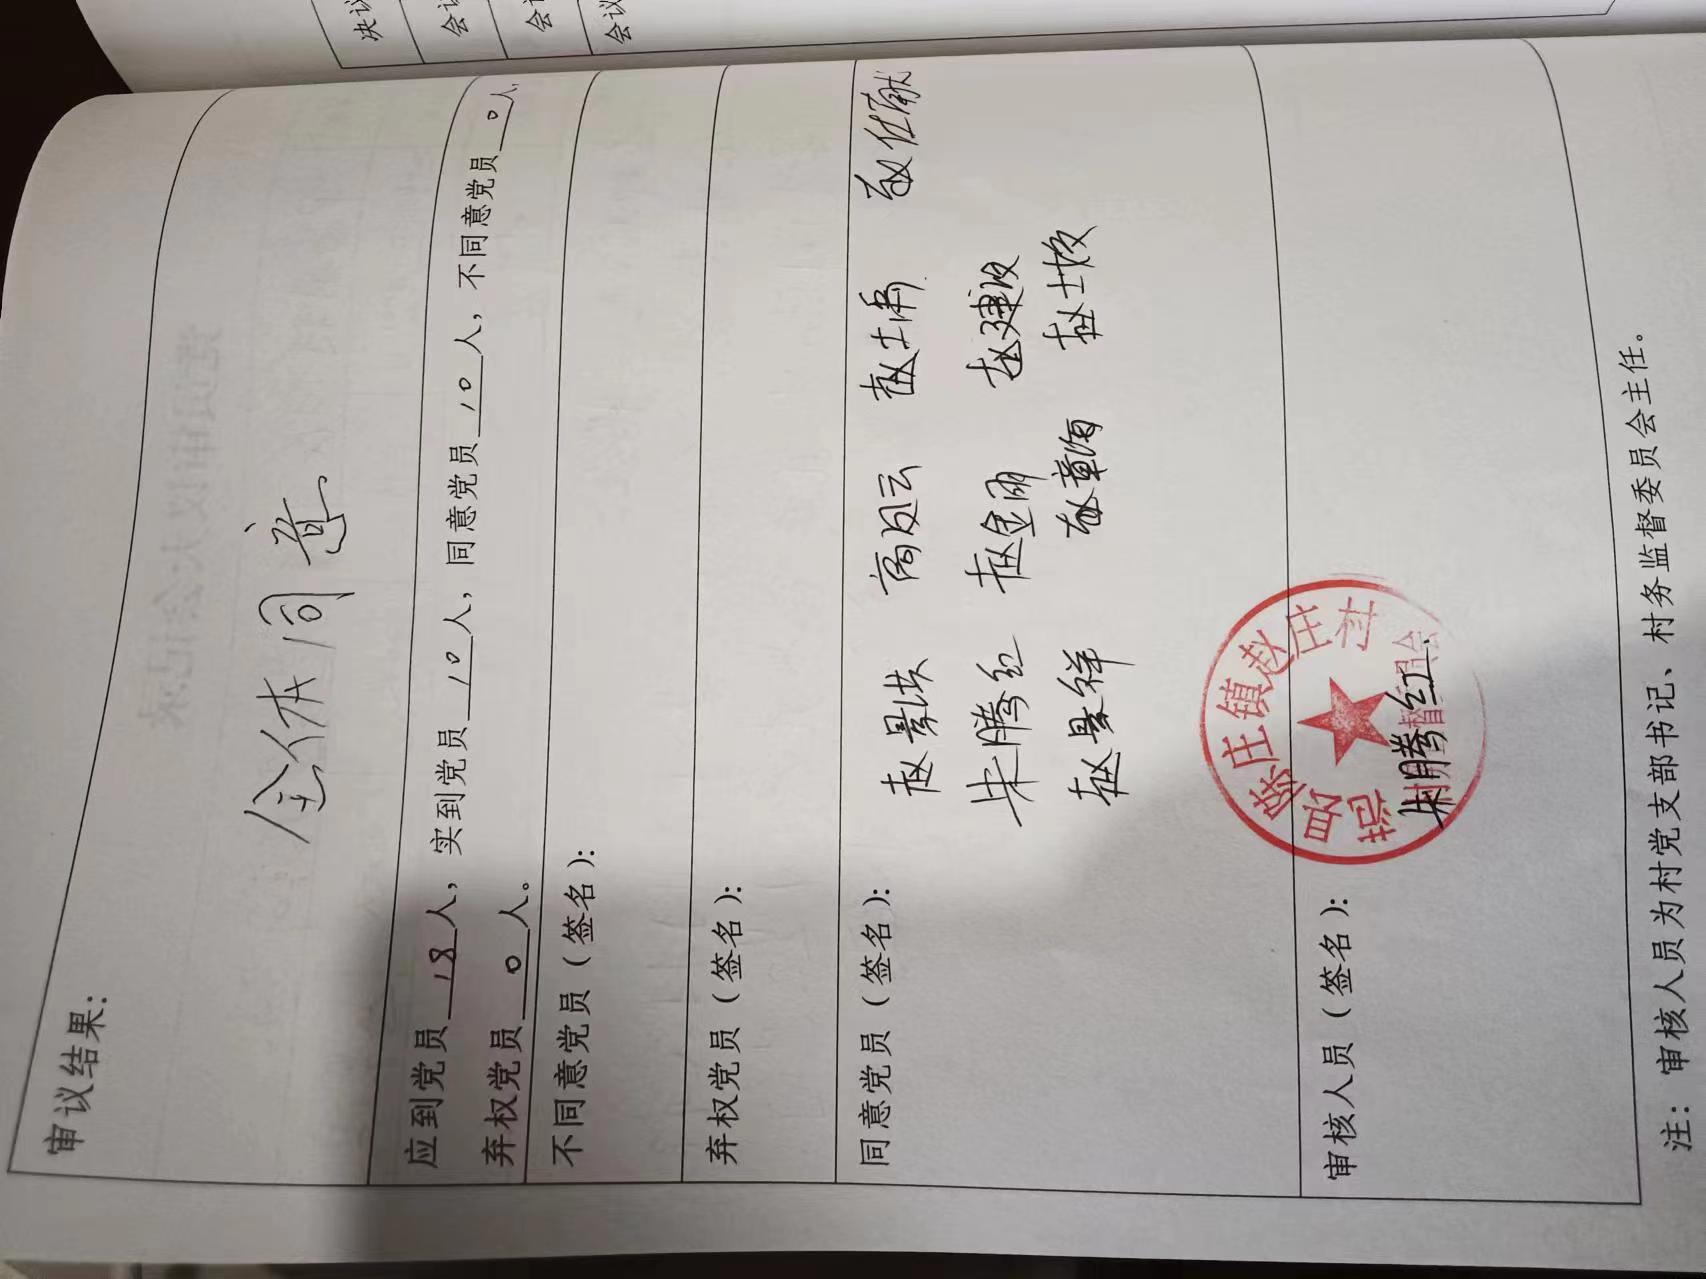 决议
会议
会议
会议
审议结果：
全体同意
应到党员 18 人，实到党员 10 人，同意党员 10 人，不同意党员 0 人，
弃权党员 0 人。
不同意党员（签名）：
弃权党员（签名）：
同意党员（签名）：
赵景洪 高凤云 赵士禹
朱腾红 赵金明 赵建设
赵景祥 赵士俊
审核人员（签名）：
朱腾红
庄镇赵庄村
注：审核人员为村党支部书记、村务监督委员会主任。